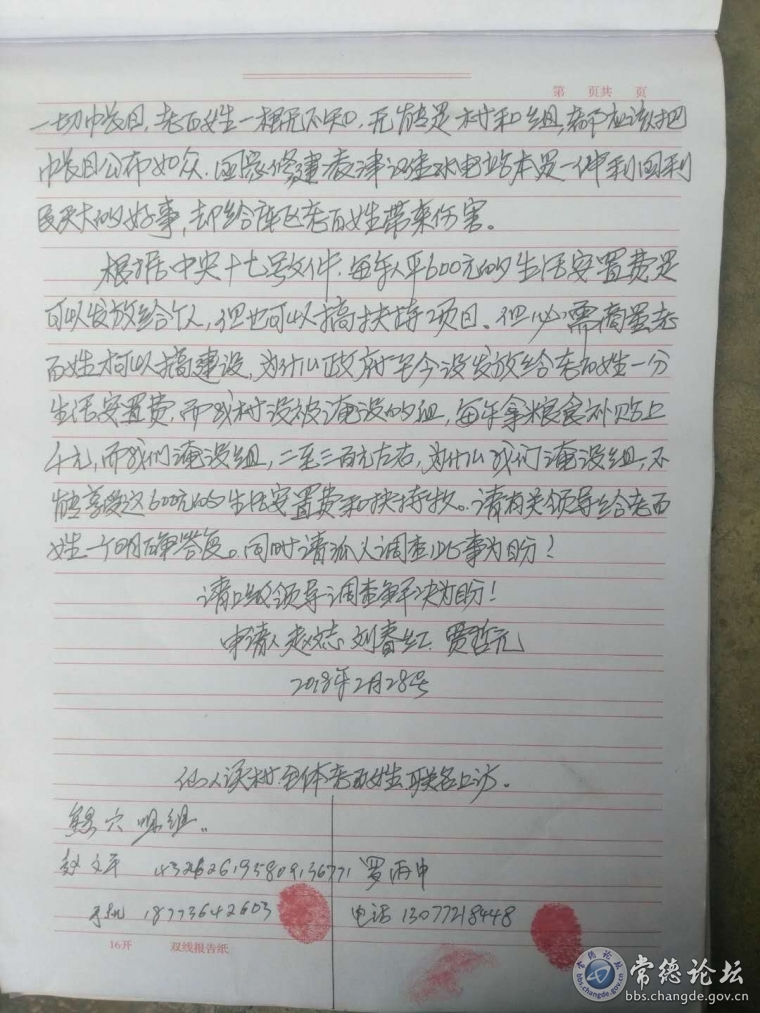 第 页共 页
一切帐目,老百姓一概不知,无能是村和组,都应该把
帐目公布如众.国家修建表津洼水电站本是一件利国利
民天大的好事,却给库区老百姓带来伤害。
根据中央十七号文件.每年人平600元的生活安置费是
可以发放给个人,但也可以搞扶持项目、但必需商量老
百姓才可以搞建设,为什么政府至今没发放给老百姓一分
生活安置费,而我村没被淹没的组,每年拿粮食补贴上
千元,而我们淹没组,二至三百元左右,为什么我们淹没组,不
能享受这600元的生活安置费和扶持款。请有关领导给老百
姓一个明确答复。同时请派人调查此事为盼!
请上级领导调查解决为盼!
申请人 赵文志 刘春红 贾哲元
2018年2月28号
仙人溪村全体老百姓联名上访.
组.
赵文平 432626195809136771 罗丙中
手机 18773642603 电话 13077218448
16开 双线报告纸
常德论坛
bbs.changde.gov.cn